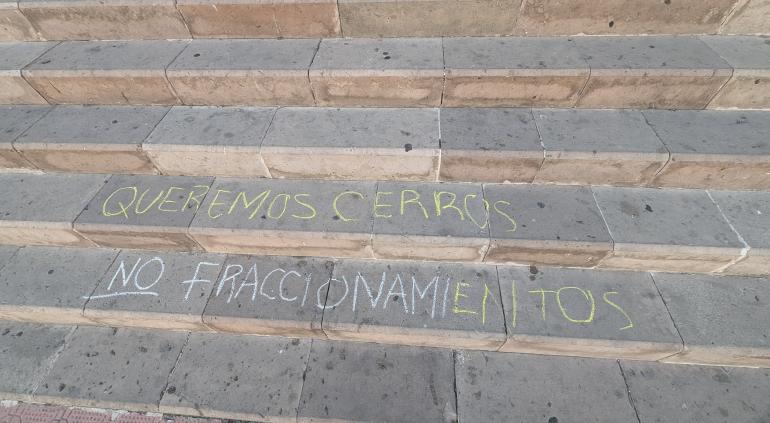 QUEREMOS CERROS
NO FRACCIONAMIENTOS